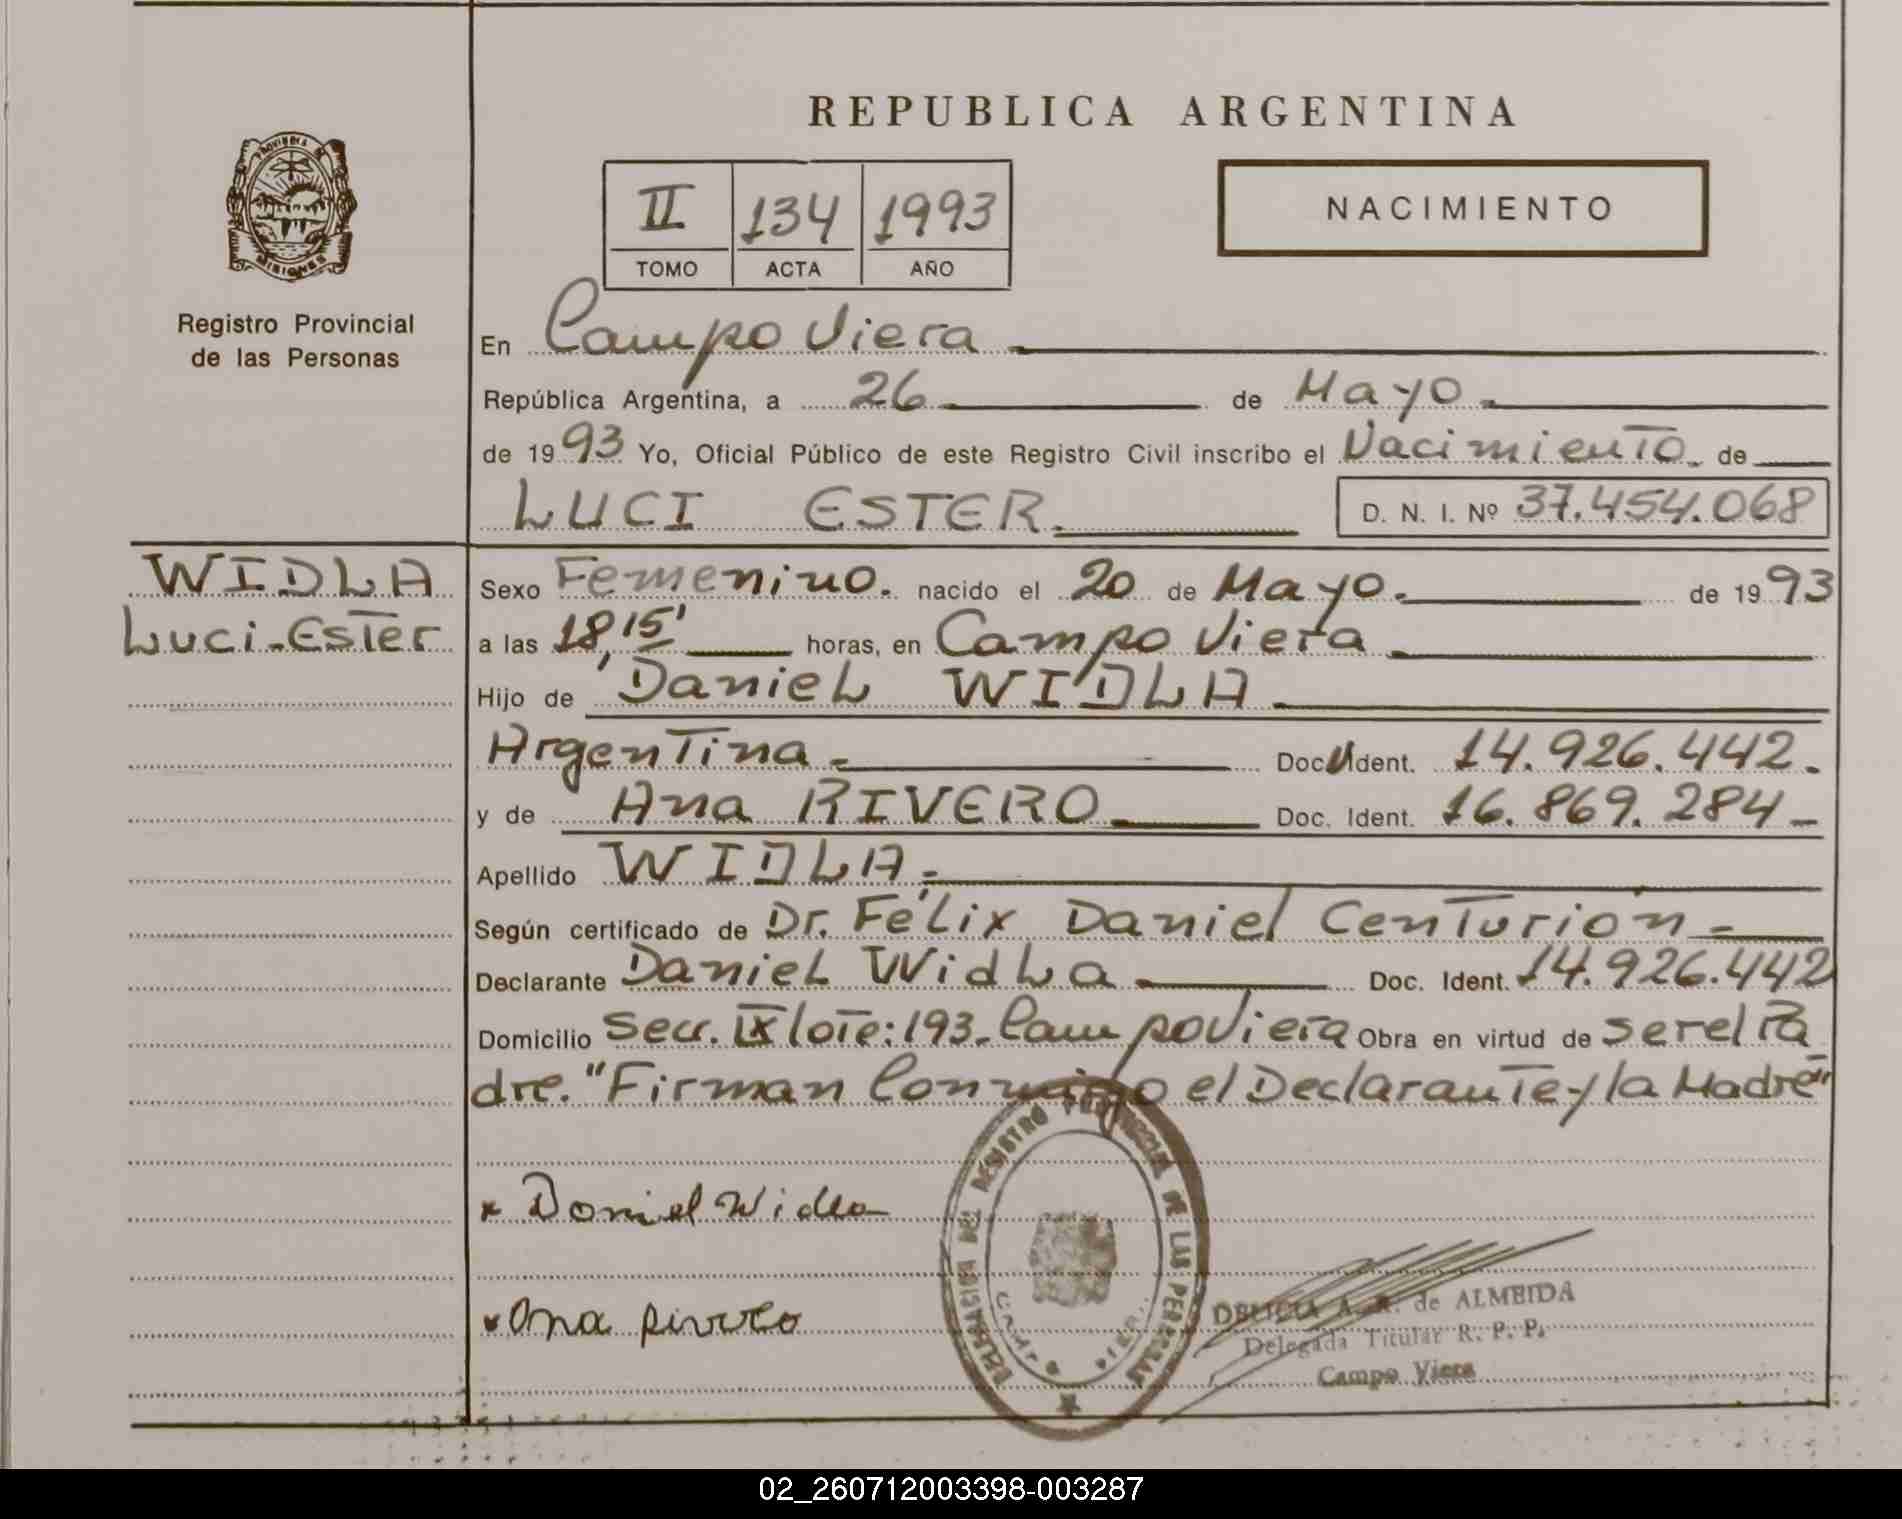 REPUBLICA ARGENTINA
PROVINCIA DE
MISIONES
Registro Provincial
de las Personas
II 134 1993
TOMO ACTA AÑO
NACIMIENTO
En Campo Viera
República Argentina, a 26 de Mayo
de 1993 Yo, Oficial Público de este Registro Civil inscribo el Nacimiento de
LUCI ESTER. D. N. I. Nº 37.454.068
WIDLA
Luci-Ester
Sexo Femenino. nacido el 20 de Mayo. de 1993
a las 18,15' horas, en Campo Viera
Hijo de Daniel WIDLA
Argentina Doc. Ident. 14.926.442.
y de Ana RIVERO Doc. Ident. 16.869.284
Apellido WIDLA
Según certificado de Dr. Félix Daniel Centurión
Declarante Daniel Widla Doc. Ident. 14.926.442
Domicilio Secc. IX lote: 193. Campo Viera Obra en virtud de ser el Pa
dre. "Firman Conmigo el Declarante y la Madre"
x Daniel Widla
x Ana
REGISTRO PROVINCIAL DE LAS PERSONAS
DELICIA A. R. de ALMEIDA
Delegada Titular R. P. P.
Campo Viera
02_260712003398-003287